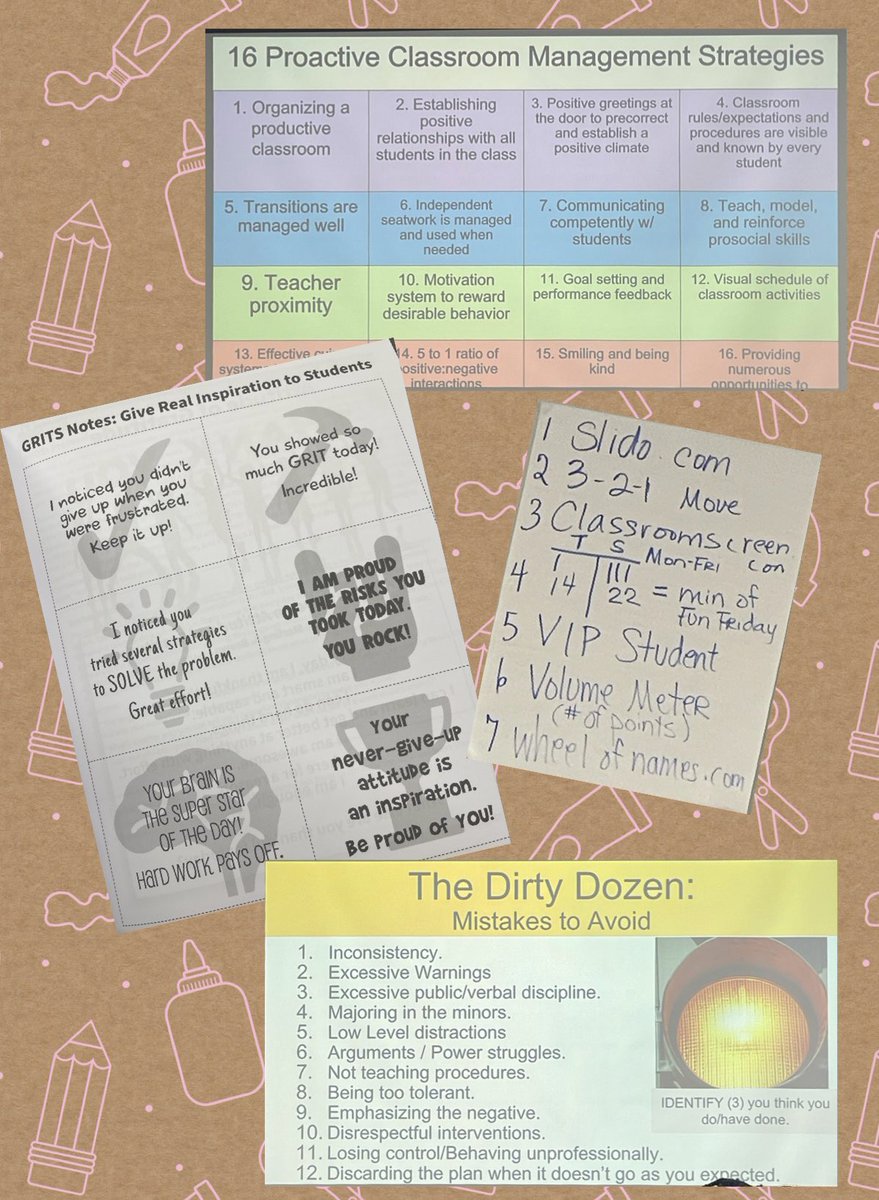 16 Proactive Classroom Management Strategies
1. Organizing a
productive
classroom
2. Establishing
positive
relationships with all
students in the class
3. Positive greetings at
the door to precorrect
and establish a
positive climate
4. Classroom
rules/expectations and
procedures are visible
and known by every
student
5. Transitions are
managed well
6. Independent
seatwork is managed
and used when
needed
7. Communicating
competently w/
students
8. Teach, model,
and reinforce
prosocial skills
9. Teacher
proximity
10. Motivation
system to reward
desirable behavior
11. Goal setting and
performance feedback
12. Visual schedule of
classroom activities
13. Effective
14. 5 to 1 ratio of
positive:negative
interactions
15. Smiling and being
kind
16. Providing
numerous
opportunities to
GRITS Notes: Give Real Inspiration to Students
I noticed you didn't
give up when you
were frustrated.
Keep it up!
You showed so
much GRIT today!
Incredible!
I noticed you
tried several strategies
to SOLVE the problem.
Great effort!
I AM PROUD
OF THE RISKS YOU
TOOK TODAY.
YOU ROCK!
YOUR BRAIN IS
THE SUPER STAR
OF THE DAY!
HARD WORK PAYS OFF.
Your
never-give-up
attitude is
an inspiration.
Be PROUD OF YOU!
1 Slido.com
2 3-2-1 Move
3 Classroomscreen
T S Mon-Fri con
4 1 111
14 22 = min of
Fun Friday
5 VIP Student
6 Volume Meter
(# of points)
7 Wheel of names.com
The Dirty Dozen:
Mistakes to Avoid
1. Inconsistency.
2. Excessive Warnings
3. Excessive public/verbal discipline.
4. Majoring in the minors.
5. Low Level distractions
6. Arguments / Power struggles.
7. Not teaching procedures.
8. Being too tolerant.
9. Emphasizing the negative.
10. Disrespectful interventions.
11. Losing control/Behaving unprofessionally.
12. Discarding the plan when it doesn't go as you expected.
IDENTIFY (3) you think you
do/have done.